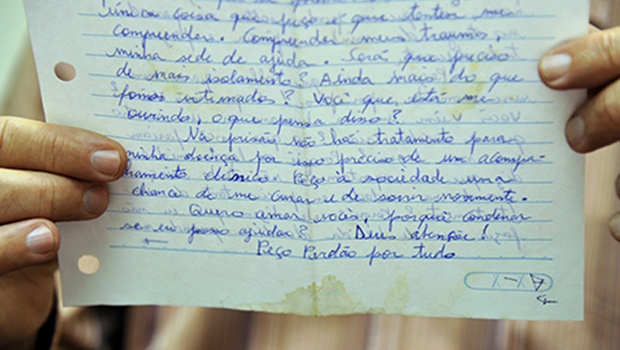 única coisa que peço é que tentem me
compreender. Compreender meus traumas,
minha sede de ajuda. Será que preciso
de mais isolamento? Ainda mais do que
fomos internados? Você que está me
ouvindo, o que pensa disso?
Na prisão não há tratamento para
minha doença por isso preciso de um acompa-
nhamento clínico. Peço à sociedade uma
chance de me curar e de sorrir novamente.
Quero amar vocês, porque condenar
se eu posso ajudar? Deu atenção!
Peço Perdão por tudo